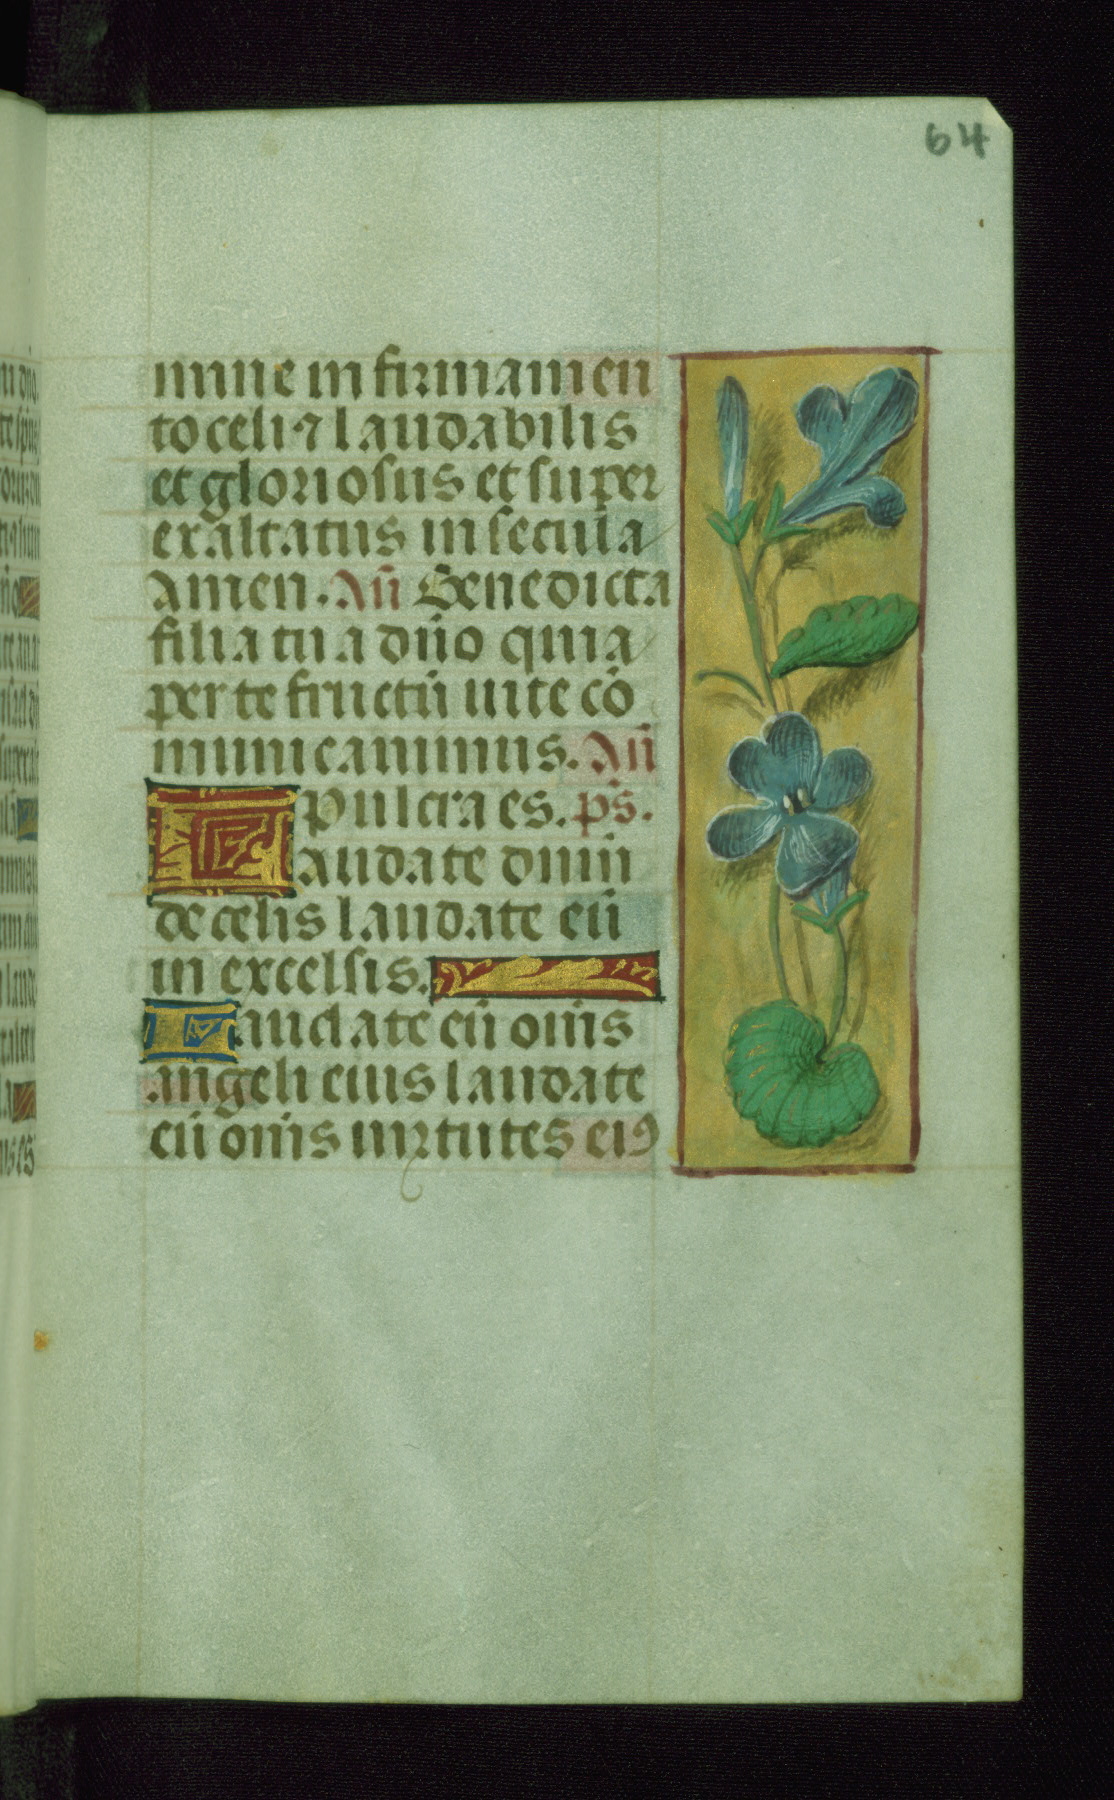 64
mine in firmamen
to celi ⁊ laudabilis
et gloriosus et super
exaltatus in secula
amen. Añ Benedicta
filia tu a dño quia
per te fructū uite cō
municamus. Añ
pulcra es. ps̄.
Laudate dnm̄
de celis laudate eū
in excelsis.
Laudate eū om̄s
angeli eius laudate
eū om̄s uirtutes eiꝰ